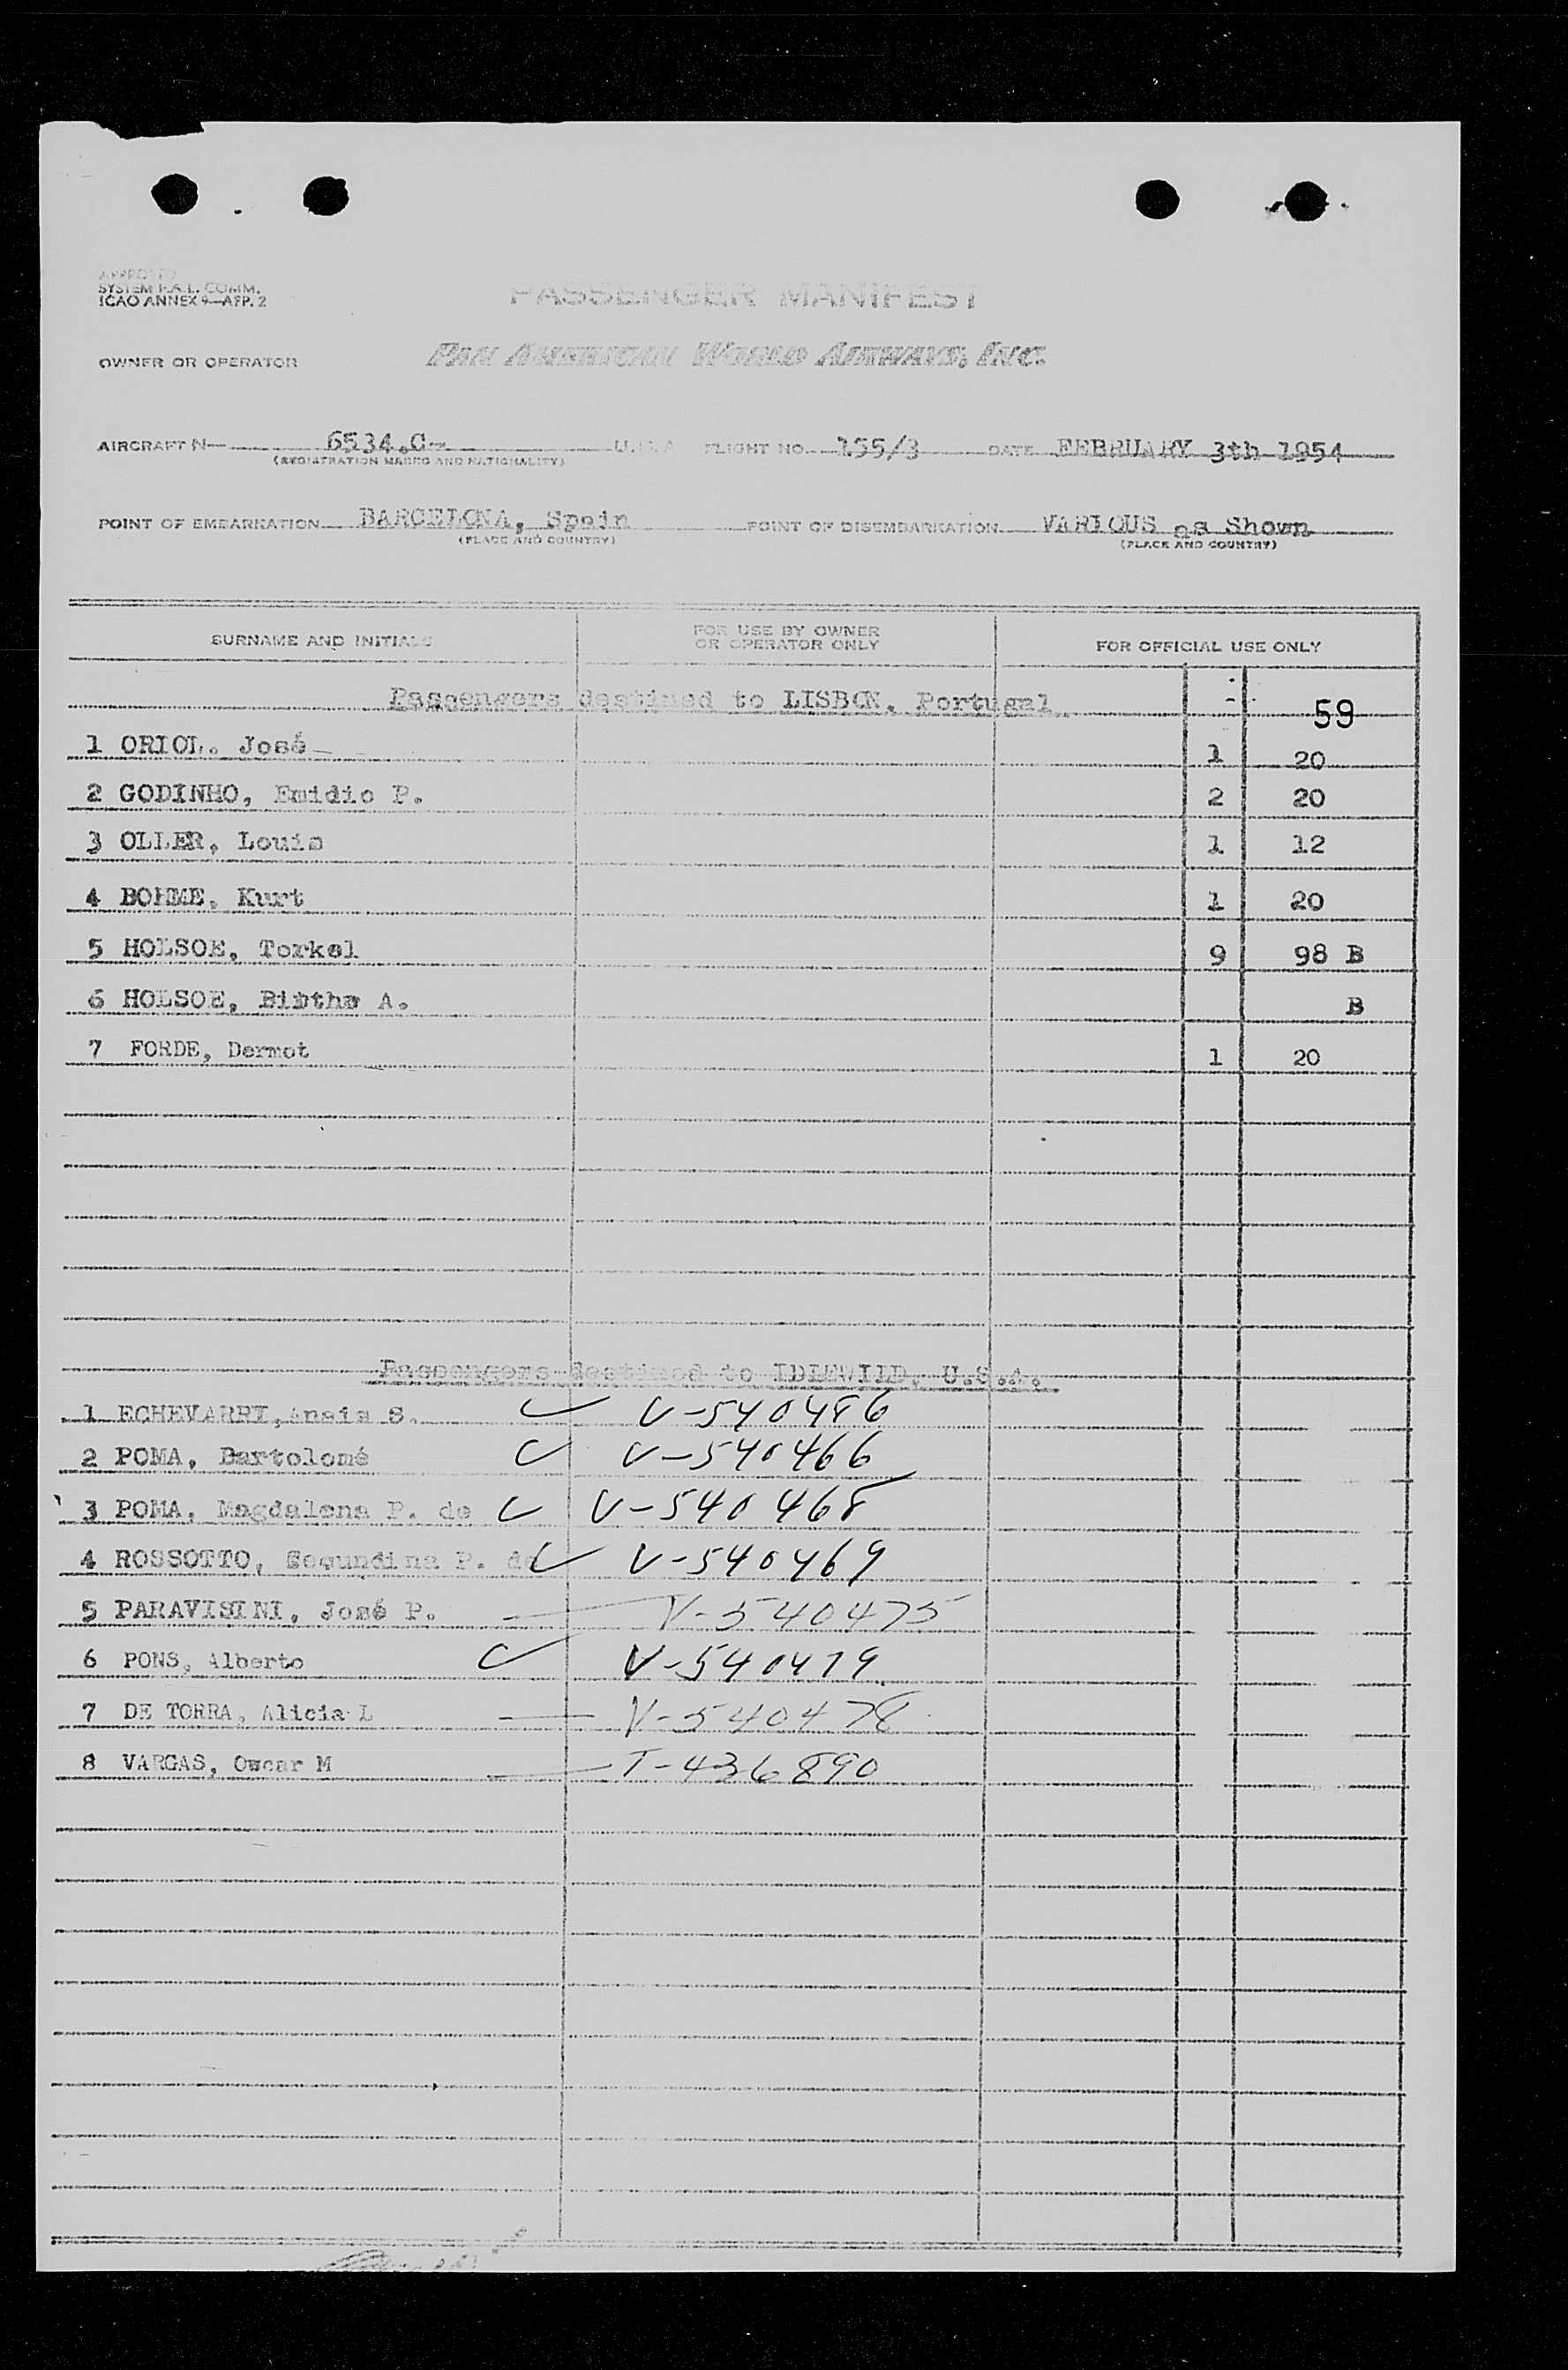 APPROVED
SYSTEM F.A.L. COMM.
ICAO ANNEX 9—APP. 2
PASSENGER MANIFEST
OWNER OR OPERATOR PAN AMERICAN WORLD AIRWAYS, INC.
AIRCRAFT N— 6534.C- U.S.A FLIGHT NO. 155/3 DATE FEBRUARY 3th 1954
(REGISTRATION MARKS AND NATIONALITY)
POINT OF EMBARKATION BARCELONA, Spain POINT OF DISEMBARKATION VARIOUS as Shown
(PLACE AND COUNTRY) (PLACE AND COUNTRY)
SURNAME AND INITIALS FOR USE BY OWNER OR OPERATOR ONLY FOR OFFICIAL USE ONLY
Passengers destined to LISBON, Portugal 59
1 ORIOL. José 1 20
2 GODINHO, Emidio P. 2 20
3 OLLER, Louis 1 12
4 BOHME, Kurt 1 20
5 HOLSOE, Torkel 9 98 B
6 HOLSOE, A. B
7 FORDE, Dermot 1 20
Passengers destined to IDLEWILD, U.S.A.
1 ECHEVARRY, S. V-540486
2 POMA, Bartolomé V-540466
3 POMA, Magdalena P. de V-540468
4 ROSSOTTO, Secundina P. de V-540469
5 PARAVISINI, José P. V-540475
6 PONS, Alberto V-540479
7 DE TORRA, Alicia L V-540478
8 VARGAS, Oscar M T-436890